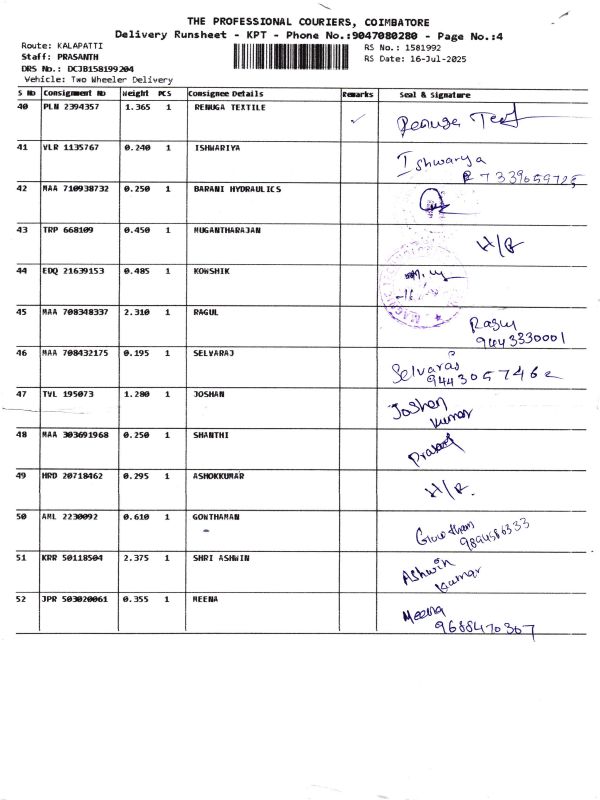 THE PROFESSIONAL COURIERS, COIMBATORE
Delivery Runsheet - KPT - Phone No.:9047080280 - Page No.:4
Route: KALAPATTI
RS No.: 1581992
Staff: PRASANTH
RS Date: 16-Jul-2025
DRS No.: DCJB158199204
Vehicle: Two Wheeler Delivery
S No Consignment No Weight PCS Consignee Details Remarks Seal & Signature
40 PLN 2394357 1.365 1 RENUGA TEXTILE ✓ Renuga Text
41 VLR 1135767 0.240 1 ISHWARIYA Ishwarya
7339659725
42 MAA 710938732 0.250 1 BARANI HYDRAULICS
43 TRP 668109 0.450 1 MUGANTHARAJAN H/R
44 EDQ 21639153 0.485 1 KOWSHIK
45 MAA 708348337 2.310 1 RAGUL Ragul
9443330001
46 MAA 708432175 0.195 1 SELVARAJ Selvaraj
9443057462
47 TVL 195073 1.280 1 JOSHAN Joshan
Kumar
48 MAA 303691968 0.250 1 SHANTHI
49 HRD 20718462 0.295 1 ASHOKKUMAR H/R.
50 AML 2230092 0.610 1 GOWTHAMAN Gowtham
9894586333
51 KRR 50118504 2.375 1 SHRI ASHWIN Ashwin
Kumar
52 JPR 503020061 0.355 1 MEENA Meena
9688470367